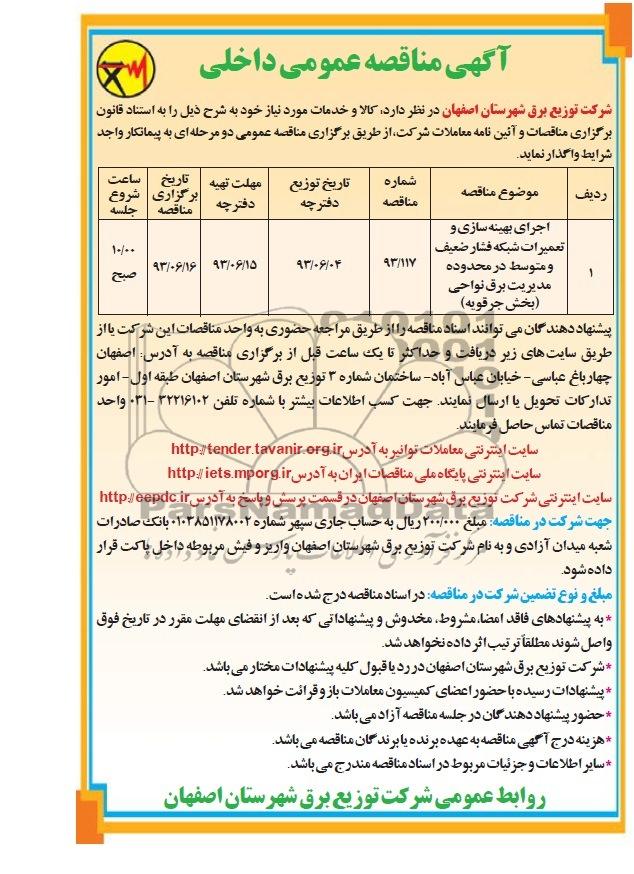 آگهی مناقصه عمومی داخلی
شرکت توزیع برق شهرستان اصفهان در نظر دارد، کالا و خدمات مورد نیاز خود به شرح ذیل را به استناد قانون
برگزاری مناقصات و آئین نامه معاملات شرکت، از طریق برگزاری مناقصه عمومی دو مرحله ای به پیمانکار واجد
شرایط واگذار نماید.
ردیف | موضوع مناقصه | شماره مناقصه | تاریخ توزیع دفترچه | مهلت تهیه دفترچه | تاریخ برگزاری مناقصه | ساعت شروع جلسه
۱ | اجرای بهینه سازی و تعمیرات شبکه فشار ضعیف و متوسط در محدوده مدیریت برق نواحی (بخش جرقویه) | ۹۳/۱۱۷ | ۹۳/۰۶/۰۴ | ۹۳/۰۶/۱۵ | ۹۳/۰۶/۱۶ | ۱۰/۰۰ صبح
پیشنهاد دهندگان می توانند اسناد مناقصه را از طریق مراجعه حضوری به واحد مناقصات این شرکت یا از
طریق سایت های زیر دریافت و حداکثر تا یک ساعت قبل از برگزاری مناقصه به آدرس: اصفهان
چهارباغ عباسی- خیابان عباس آباد- ساختمان شماره ۳ توزیع برق شهرستان اصفهان طبقه اول- امور
تدارکات تحویل یا ارسال نمایند. جهت کسب اطلاعات بیشتر با شماره تلفن ۳۲۲۱۶۱۰۲ -۰۳۱ واحد
مناقصات تماس حاصل فرمایند.
سایت اینترنتی معاملات توانیر به آدرس http://tender.tavanir.org.ir
سایت اینترنتی پایگاه ملی مناقصات ایران به آدرس http://iets.mporg.ir
سایت اینترنتی شرکت توزیع برق شهرستان اصفهان در قسمت پرسش و پاسخ به آدرس http://eepdc.ir
جهت شرکت در مناقصه: مبلغ ۲۰۰/۰۰۰ ریال به حساب جاری سپهر شماره ۰۱۰۳۸۵۱۱۷۸۰۰۲ بانک صادرات
شعبه میدان آزادی و به نام شرکت توزیع برق شهرستان اصفهان واریز و فیش مربوطه داخل پاکت قرار
داده شود.
مبلغ و نوع تضمین شرکت در مناقصه: در اسناد مناقصه درج شده است.
* به پیشنهادهای فاقد امضا، مشروط، مخدوش و پیشنهاداتی که بعد از انقضای مهلت مقرر در تاریخ فوق
واصل شوند مطلقاً ترتیب اثر داده نخواهد شد.
*شرکت توزیع برق شهرستان اصفهان در رد یا قبول کلیه پیشنهادات مختار می باشد.
*پیشنهادات رسیده با حضور اعضای کمیسیون معاملات باز و قرائت خواهد شد.
*حضور پیشنهاد دهندگان در جلسه مناقصه آزاد می باشد.
*هزینه درج آگهی مناقصه به عهده برنده یا برندگان مناقصه می باشد.
*سایر اطلاعات و جزئیات مربوط در اسناد مناقصه مندرج می باشد.
روابط عمومی شرکت توزیع برق شهرستان اصفهان
ParsNamadData